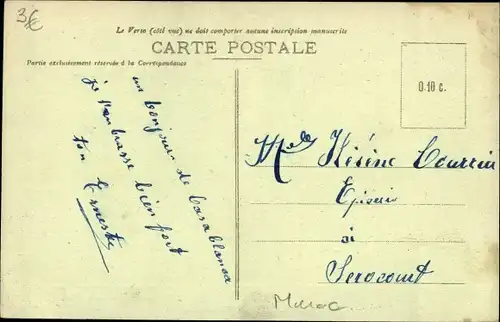 3€
Le Verso (côté vue) ne doit comporter aucune inscription manuscrite
CARTE POSTALE
Partie exclusivement réservée à la Correspondance
0.10 c.
un bonjour de Casablanca
je t'embrasse bien fort
ton Ernest
Melle Hélène
Epicerie
à
Serocourt
Maroc